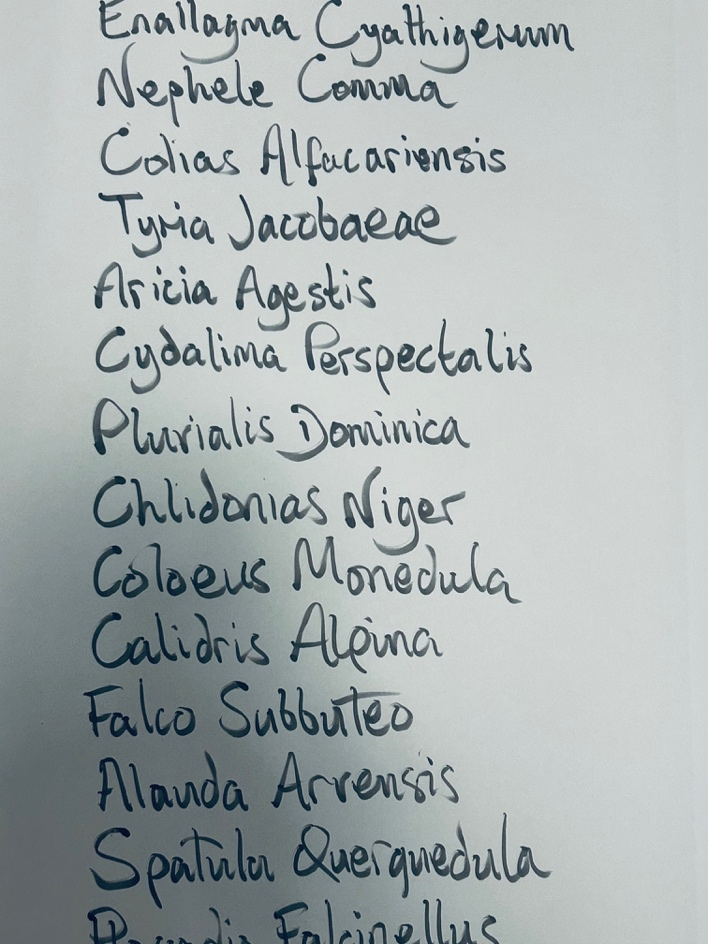 Enallagma Cyathigerum
Nephele Comma
Colias Alfacariensis
Tyria Jacobaeae
Aricia Agestis
Cydalima Perspectalis
Plurialis Dominica
Chlidonias Niger
Coloeus Monedula
Calidris Alpina
Falco Subbuteo
Alauda Arvensis
Spatula Querquedula
Falcinellus